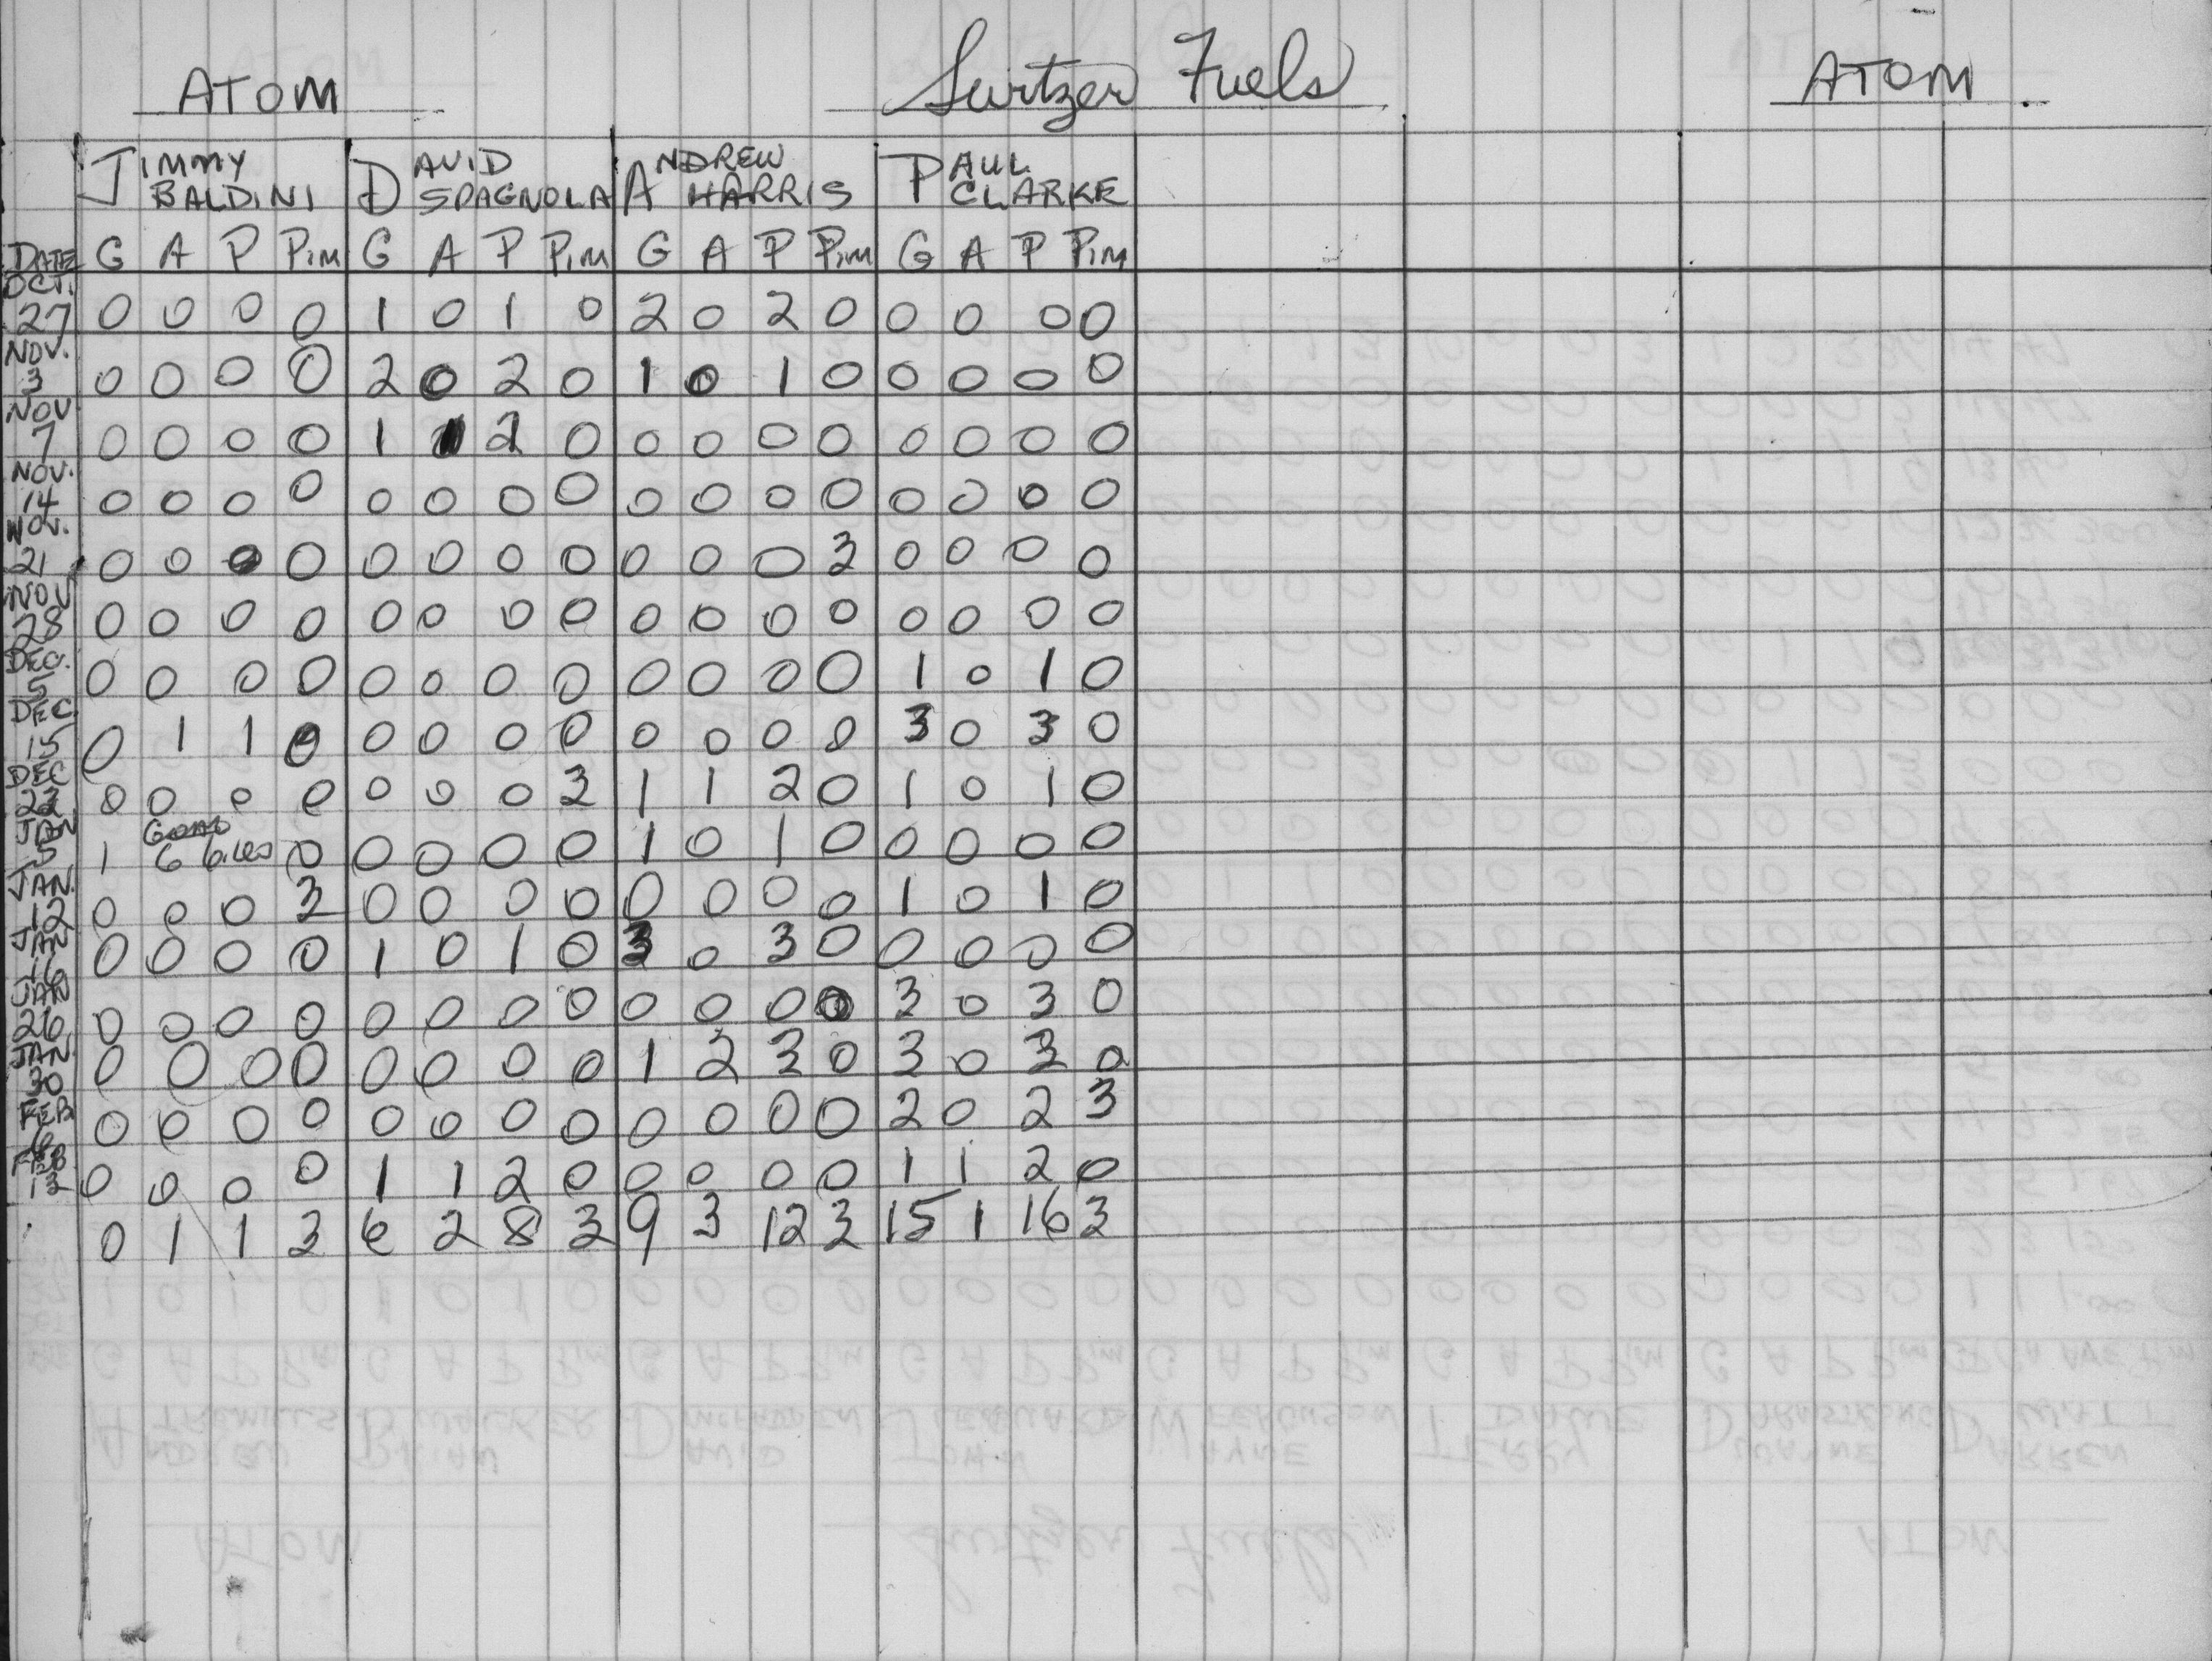 ATOM Switzer Fuels ATOM
JIMMY BALDINI DAVID SPAGNOLA ANDREW HARRIS PAUL CLARKE
DATE G A P Pim G A P Pim G A P Pim G A P Pim
OCT. 27 0 0 0 0 1 0 1 0 2 0 2 0 0 0 0 0
NOV. 3 0 0 0 0 2 0 2 0 1 0 1 0 0 0 0 0
NOV 7 0 0 0 0 1 1 2 0 0 0 0 0 0 0 0 0
NOV. 14 0 0 0 0 0 0 0 0 0 0 0 0 0 0 0 0
NOV. 21 0 0 0 0 0 0 0 0 0 0 0 3 0 0 0 0
NOV 28 0 0 0 0 0 0 0 0 0 0 0 0 0 0 0 0
DEC. 5 0 0 0 0 0 0 0 0 0 0 0 0 1 0 1 0
DEC. 15 0 1 1 0 0 0 0 0 0 0 0 0 3 0 3 0
DEC 22 0 0 0 0 0 0 0 3 1 1 2 0 1 0 1 0
JAN 5 1 Game 0 0 0 0 0 1 0 1 0 0 0 0 0
JAN. 12 0 0 0 3 0 0 0 0 0 0 0 0 1 0 1 0
JAN 16 0 0 0 0 1 0 1 0 3 0 3 0 0 0 0 0
JAN 26 0 0 0 0 0 0 0 0 0 0 0 0 3 0 3 0
JAN. 30 0 0 0 0 0 0 0 0 1 2 3 0 3 0 3 0
FEB 6 0 0 0 0 0 0 0 0 0 0 0 0 2 0 2 3
FEB 13 0 0 0 0 1 1 2 0 0 0 0 0 1 1 2 0
0 1 1 3 6 2 8 3 9 3 12 3 15 1 16 3